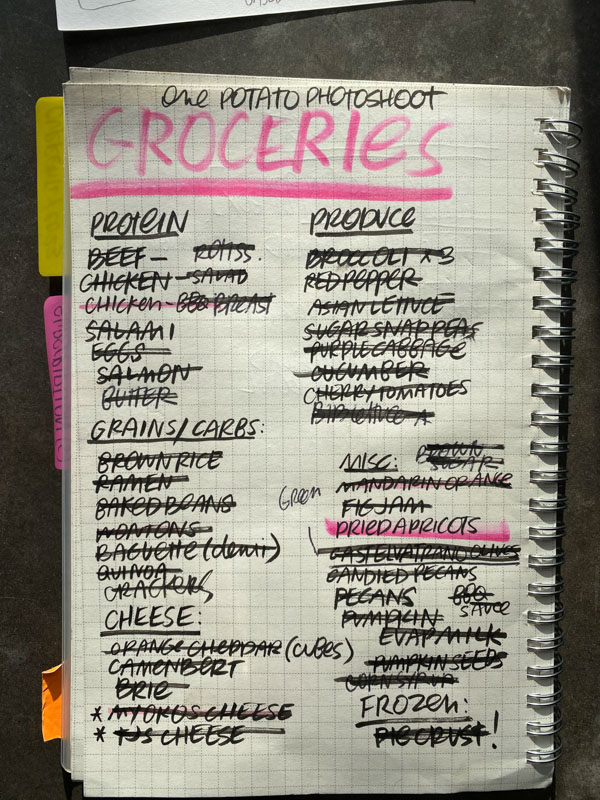 One POTATO PHOTOSHOOT
GROCERIES
PROTEIN
BEEF - ROTISS.
CHICKEN - SALAD
CHICKEN - BBQ BREAST
SALAMI
EGGS
SALMON
BUTTER
GRAINS/CARBS:
BROWN RICE
RAMEN
BAKED BEANS
WONTONS
BAGUETTE (demi)
QUINOA
CRACKERS
CHEESE:
ORANGE CHEDDAR (CUBES)
CAMENBERT
BRIE
* MYOKOS CHEESE
* TJS CHEESE
PRODUCE
BROCCOLI x 3
RED PEPPER
ASIAN LETTUCE
SUGAR SNAP PEAS
PURPLE CABBAGE
CUCUMBER
CHERRY TOMATOES
BIBB lettuce
MISC: BROWN SUGAR
MANDARIN ORANGE
Green
FIG JAM
DRIED APRICOTS
CASTELVATRANO OLIVES
CANDIED PECANS
PECANS
BBQ SAUCE
PUMPKIN
EVAP MILK
PUMPKIN SEEDS
CORN SYRUP
FROZEN:
PIE CRUST!